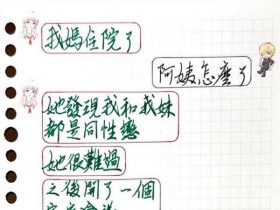 我媽住院了
阿姨怎麼了
她發現我和我妹
都是同性戀
她很難過
之後開了一個